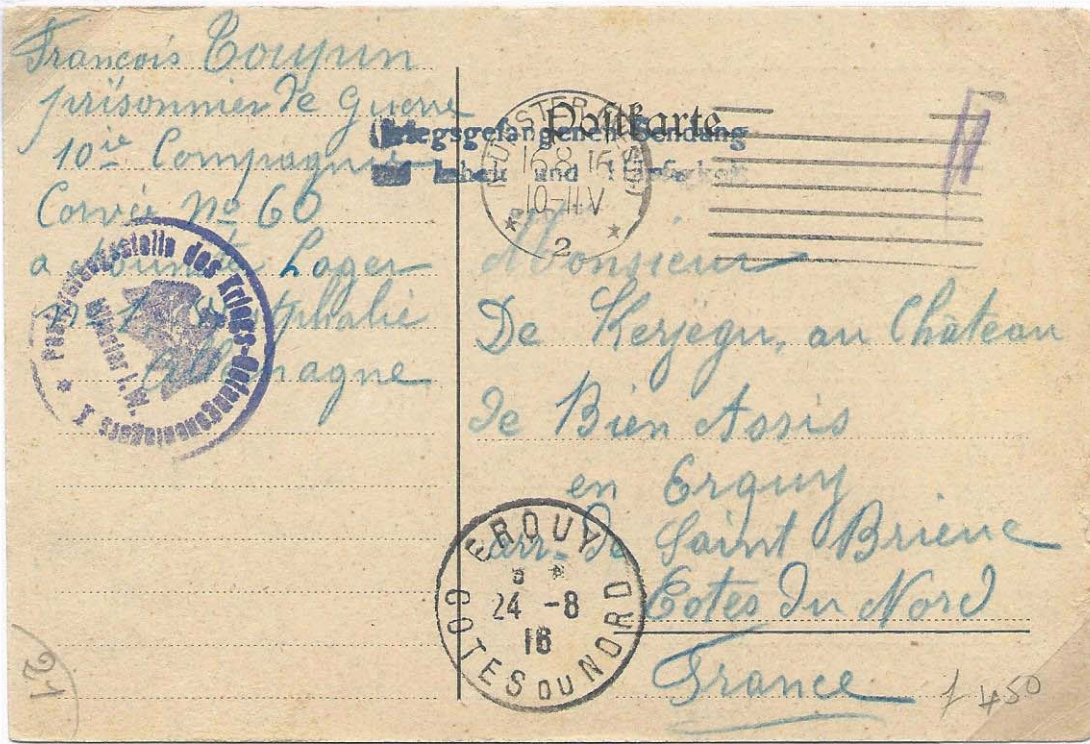 François Toupin
prisonnier de guerre
10ie Compagnie
Corvée No 60
a Munster Lager
No 1 Westphalie
Allemagne
Postprüfungsstelle des Kriegs-Gefangenenlagers I
Münster i. W.
Postkarte
Kriegsgefangenen Sendung
MÜNSTER (WESTF)
16.8.16
10-11V
2
Monsieur
De Kerjégu, au Château
de Bien Assis
en Erquy
arr. de Saint Brieuc
Cotes du Nord
France
ERQUY
24 -8
16
COTES DU NORD
21
450